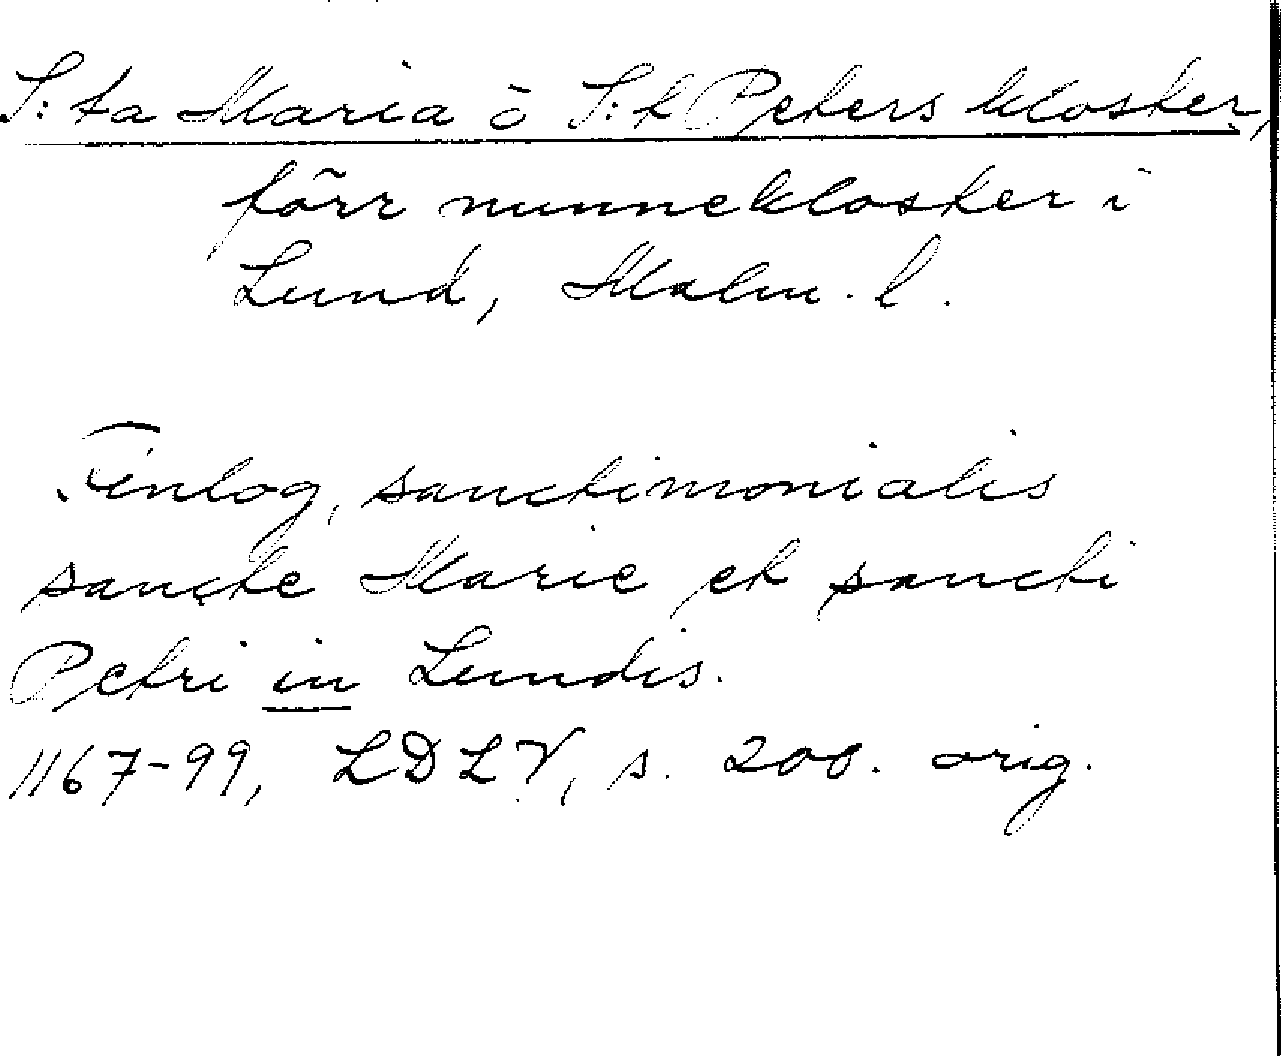 S:ta Maria o S:t Peters kloster,
förr nunnekloster i
Lund, Malm. l.
Finlog, sanctimonialis
sancte Marie et sancti
Petri in Lundis.
1167-99, LDLV, s. 200. orig.